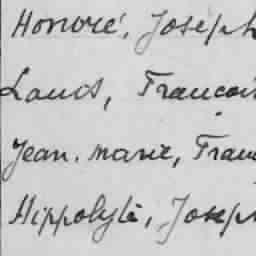 Honoré, Joseph
Louis, Francois
Jean. marie, Fran
Hippolyte, Joseph